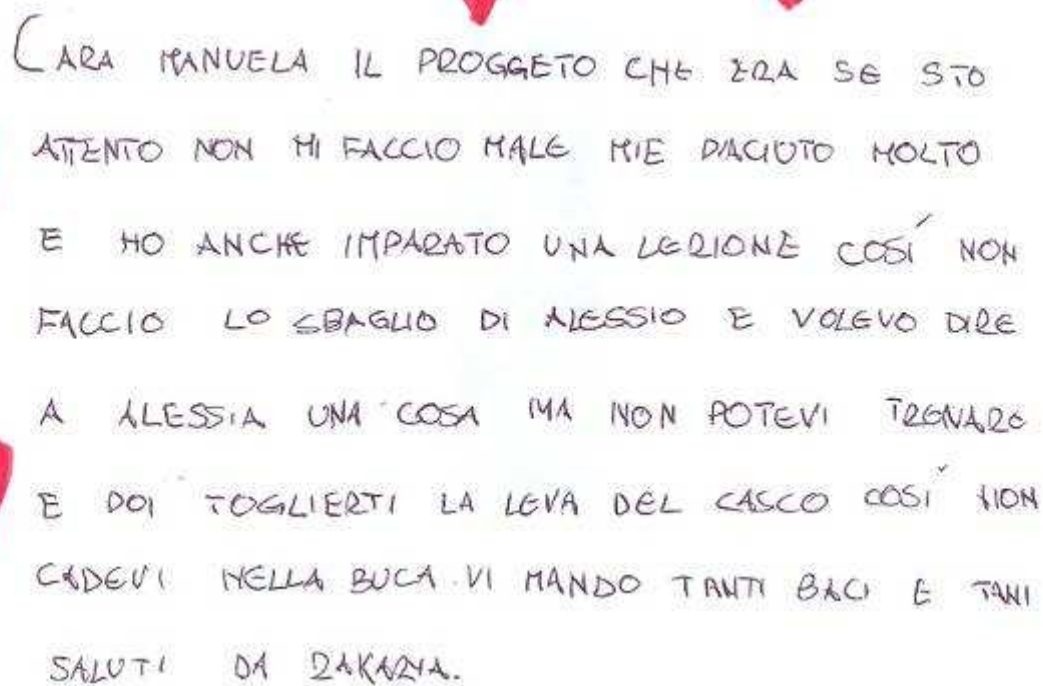 CARA MANUELA IL PROGGETO CHE ERA SE STO
ATTENTO NON MI FACCIO MALE MIE PIACIUTO MOLTO
E HO ANCHE IMPARATO UNA LEZIONE COSÍ NON
FACCIO LO SBAGLIO DI ALESSIO E VOLEVO DIRE
A ALESSIA UNA COSA MA NON POTEVI FRENARE
E POI TOGLIERTI LA LEVA DEL CASCO COSÍ NON
CADEVI NELLA BUCA VI MANDO TANTI BACI E TANI
SALUTI DA ZAKARYA.